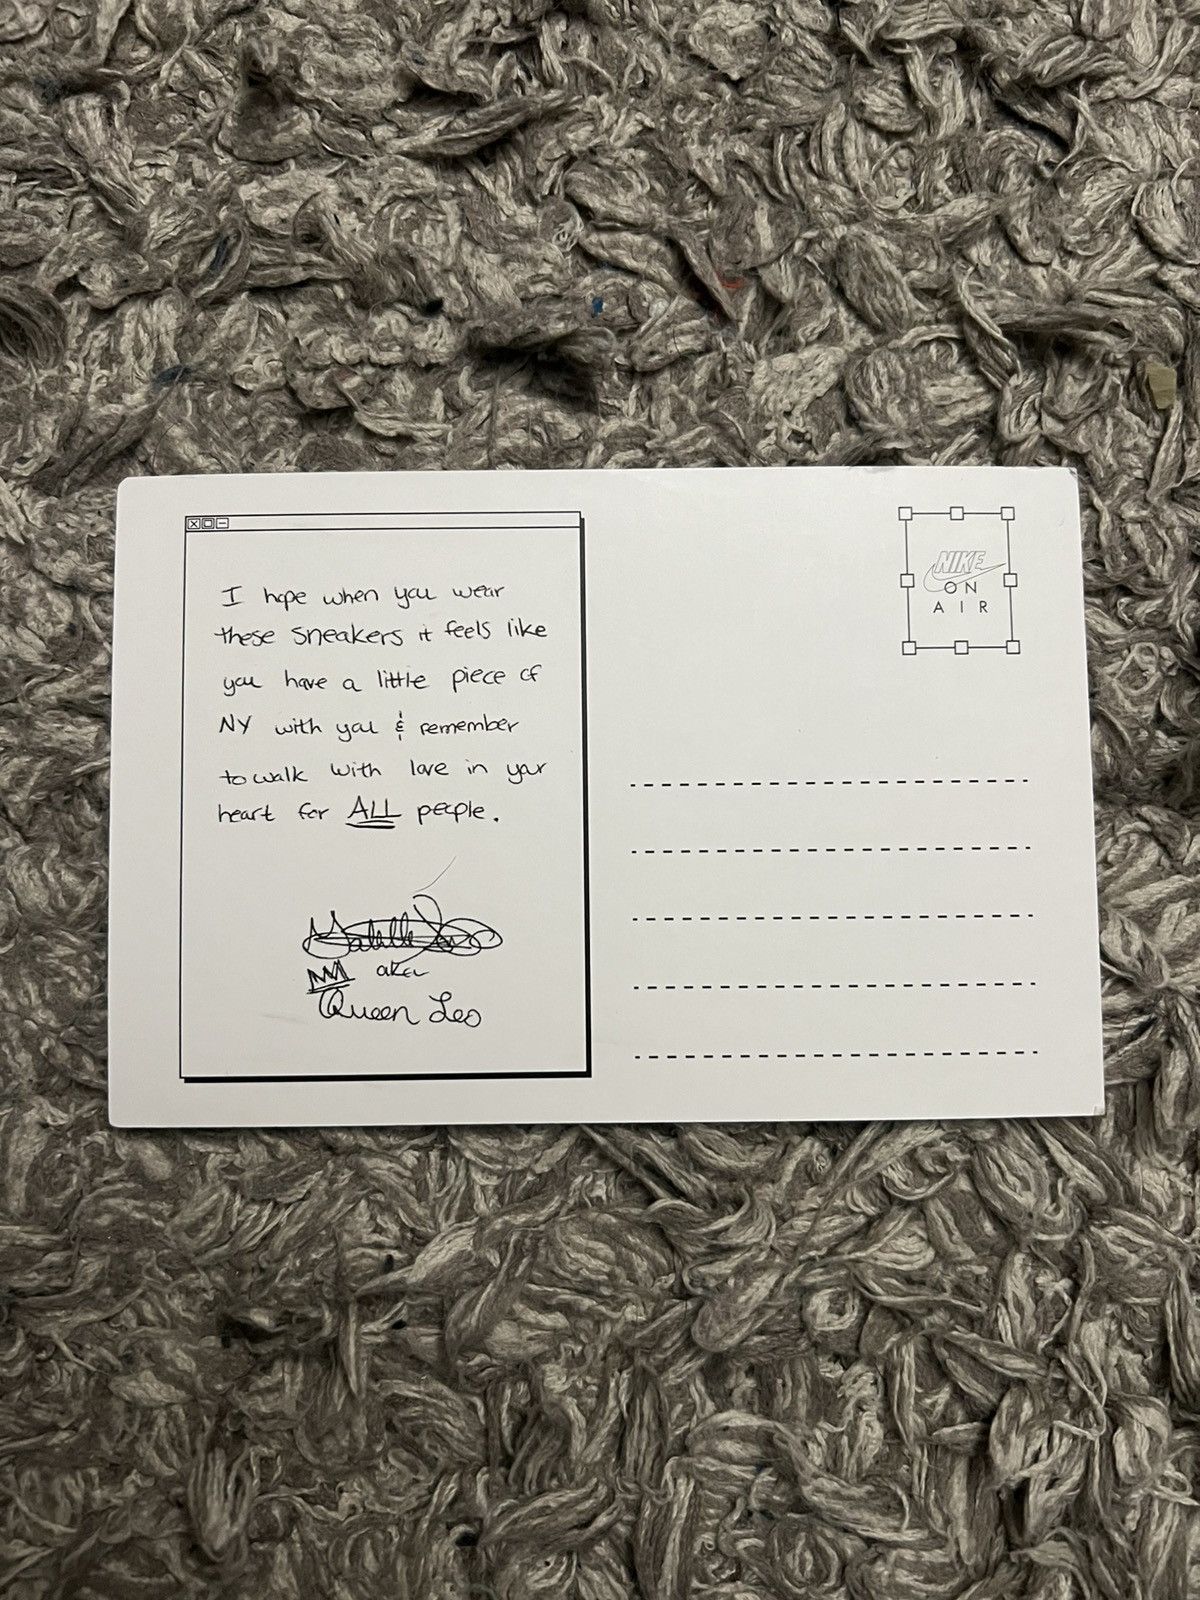 I hope when you wear
these sneakers it feels like
you have a little piece of
NY with you & remember
to walk with love in your
heart for ALL people.
aka
Queen Leo
NIKE
ON
AIR